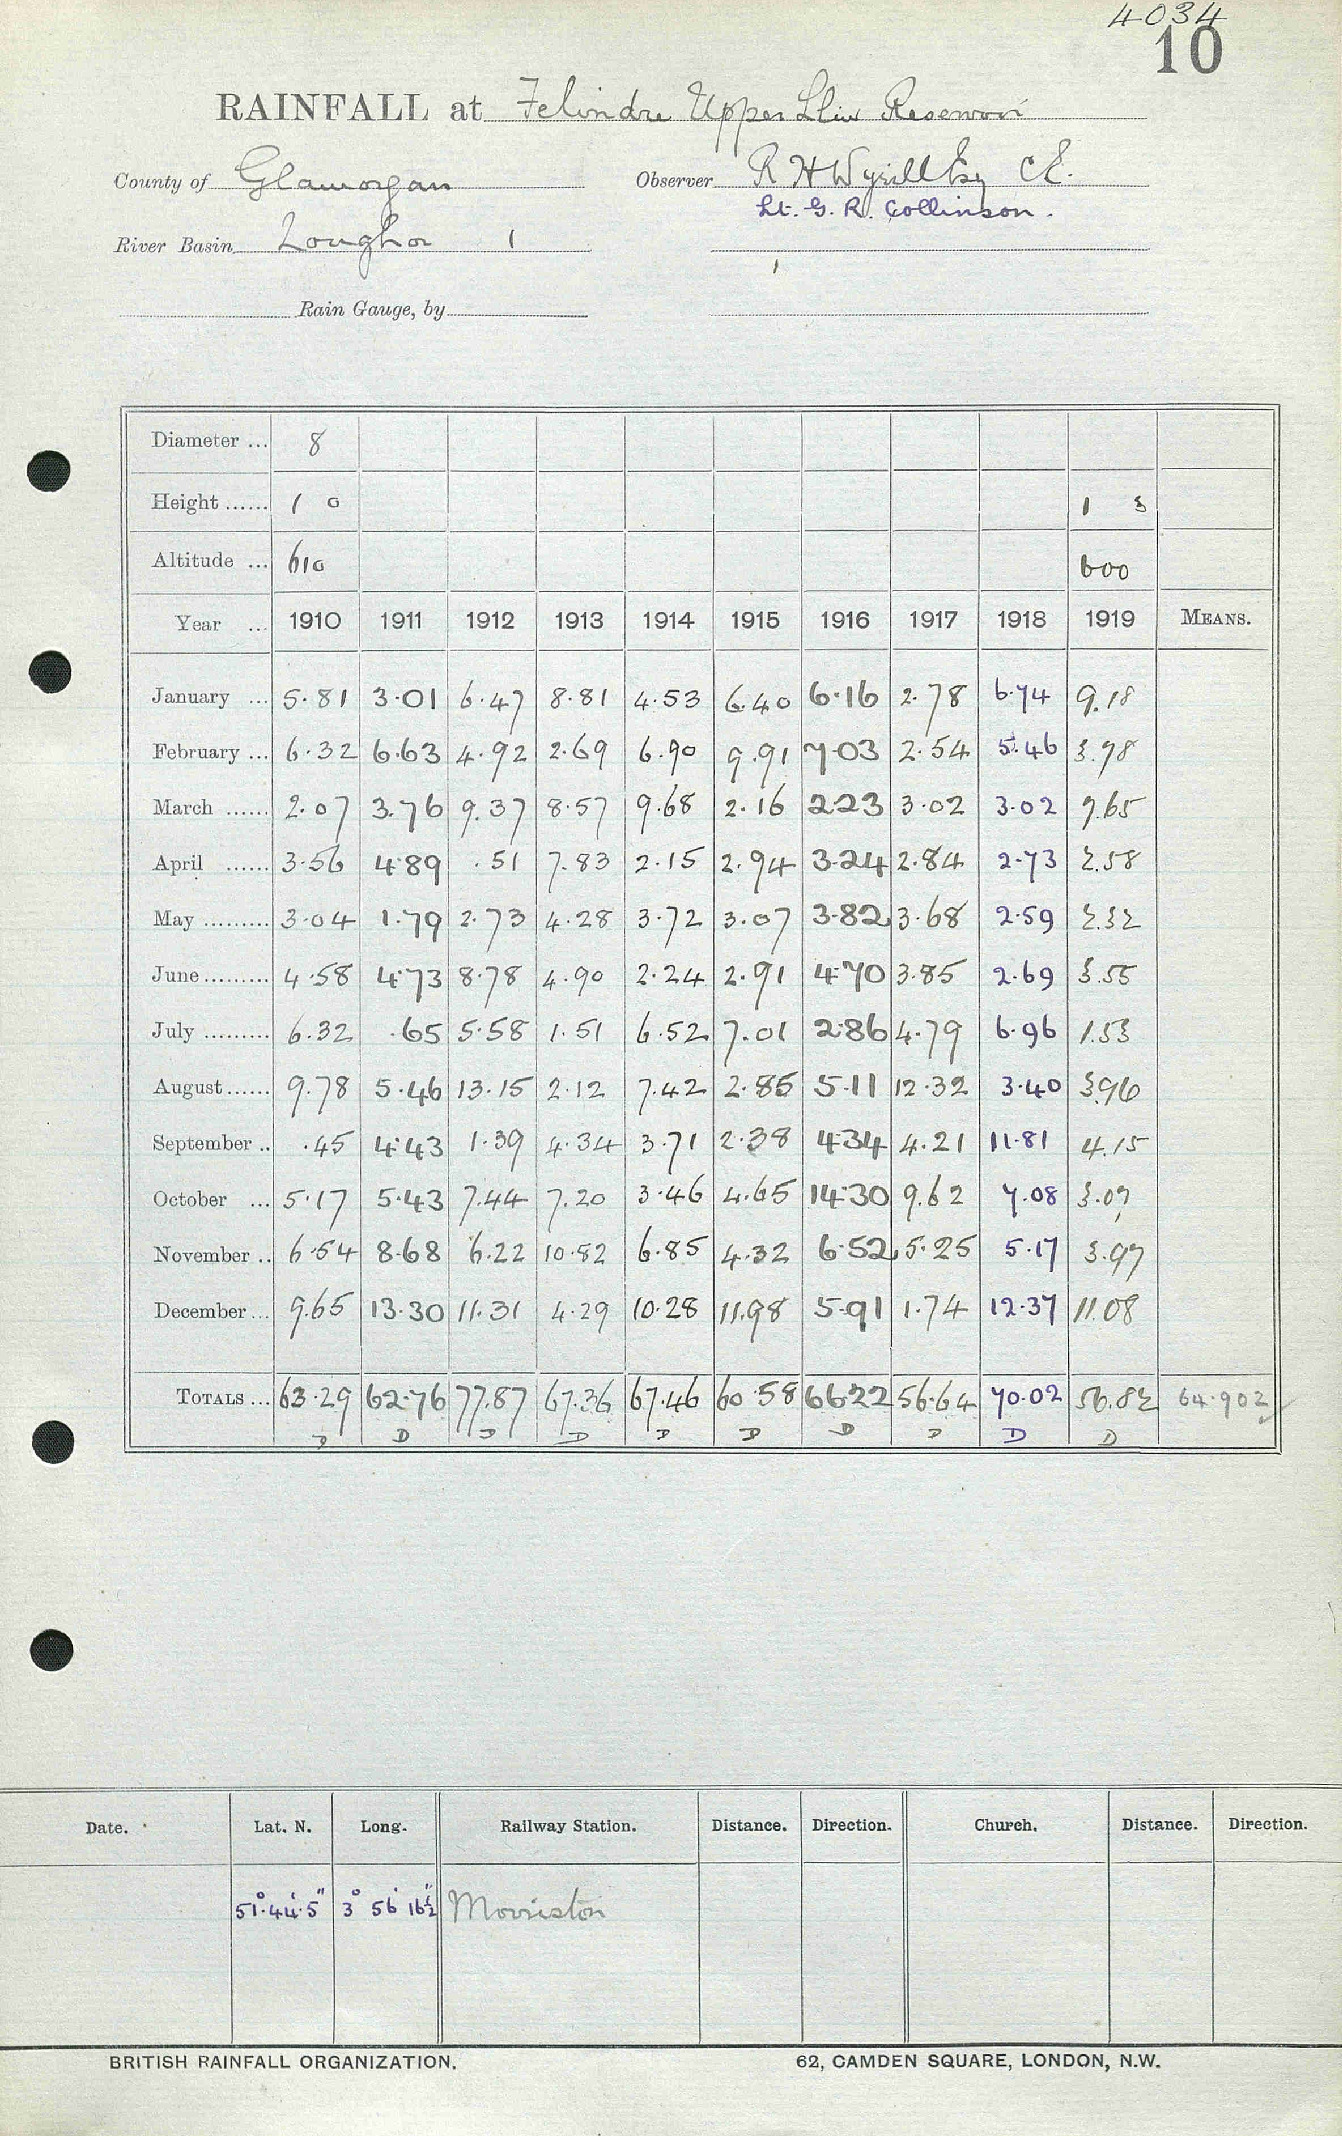 4034
10
RAINFALL at Felindre Upper Lliw Reservoir
County of Glamorgan Observer R H Wyrill Esq C.E.
Lt. G. R. Collinson.
River Basin Loughor 1
Rain Gauge, by
Diameter ... 8
Height ...... 1 0 1 3
Altitude ... 610 600
Year ... 1910 1911 1912 1913 1914 1915 1916 1917 1918 1919 MEANS.
January ... 5.81 3.01 6.47 8.81 4.53 6.40 6.16 2.78 6.74 9.18
February ... 6.32 6.63 4.92 2.69 6.90 9.91 7.03 2.54 5.46 3.78
March ...... 2.07 3.76 9.37 8.57 9.68 2.16 2.23 3.02 3.02 7.65
April ...... 3.56 4.89 .51 7.83 2.15 2.94 3.24 2.84 2.73 2.58
May ......... 3.04 1.79 2.73 4.28 3.72 3.07 3.82 3.68 2.59 2.32
June ......... 4.58 4.73 8.78 4.90 2.24 2.91 4.70 3.85 2.69 3.55
July ......... 6.32 .65 5.58 1.51 6.52 7.01 2.86 4.79 6.96 1.53
August ...... 9.78 5.46 13.15 2.12 7.42 2.85 5.11 12.32 3.40 3.96
September .. .45 4.43 1.39 4.34 3.71 2.38 4.34 4.21 11.81 4.15
October ... 5.17 5.43 7.44 7.20 3.46 4.65 14.30 9.62 7.08 3.07
November .. 6.54 8.68 6.22 10.82 6.85 4.32 6.52 5.25 5.17 3.97
December ... 9.65 13.30 11.31 4.29 10.28 11.98 5.91 1.74 12.37 11.08
TOTALS ... 63.29 62.76 77.87 67.36 67.46 60.58 66.22 56.64 70.02 56.82 64.902
D D D D D D D D D D
Date. Lat. N. Long. Railway Station. Distance. Direction. Church. Distance. Direction.
51° 44' 5" 3° 56' 16½" Morriston
BRITISH RAINFALL ORGANIZATION. 62, CAMDEN SQUARE, LONDON, N.W.